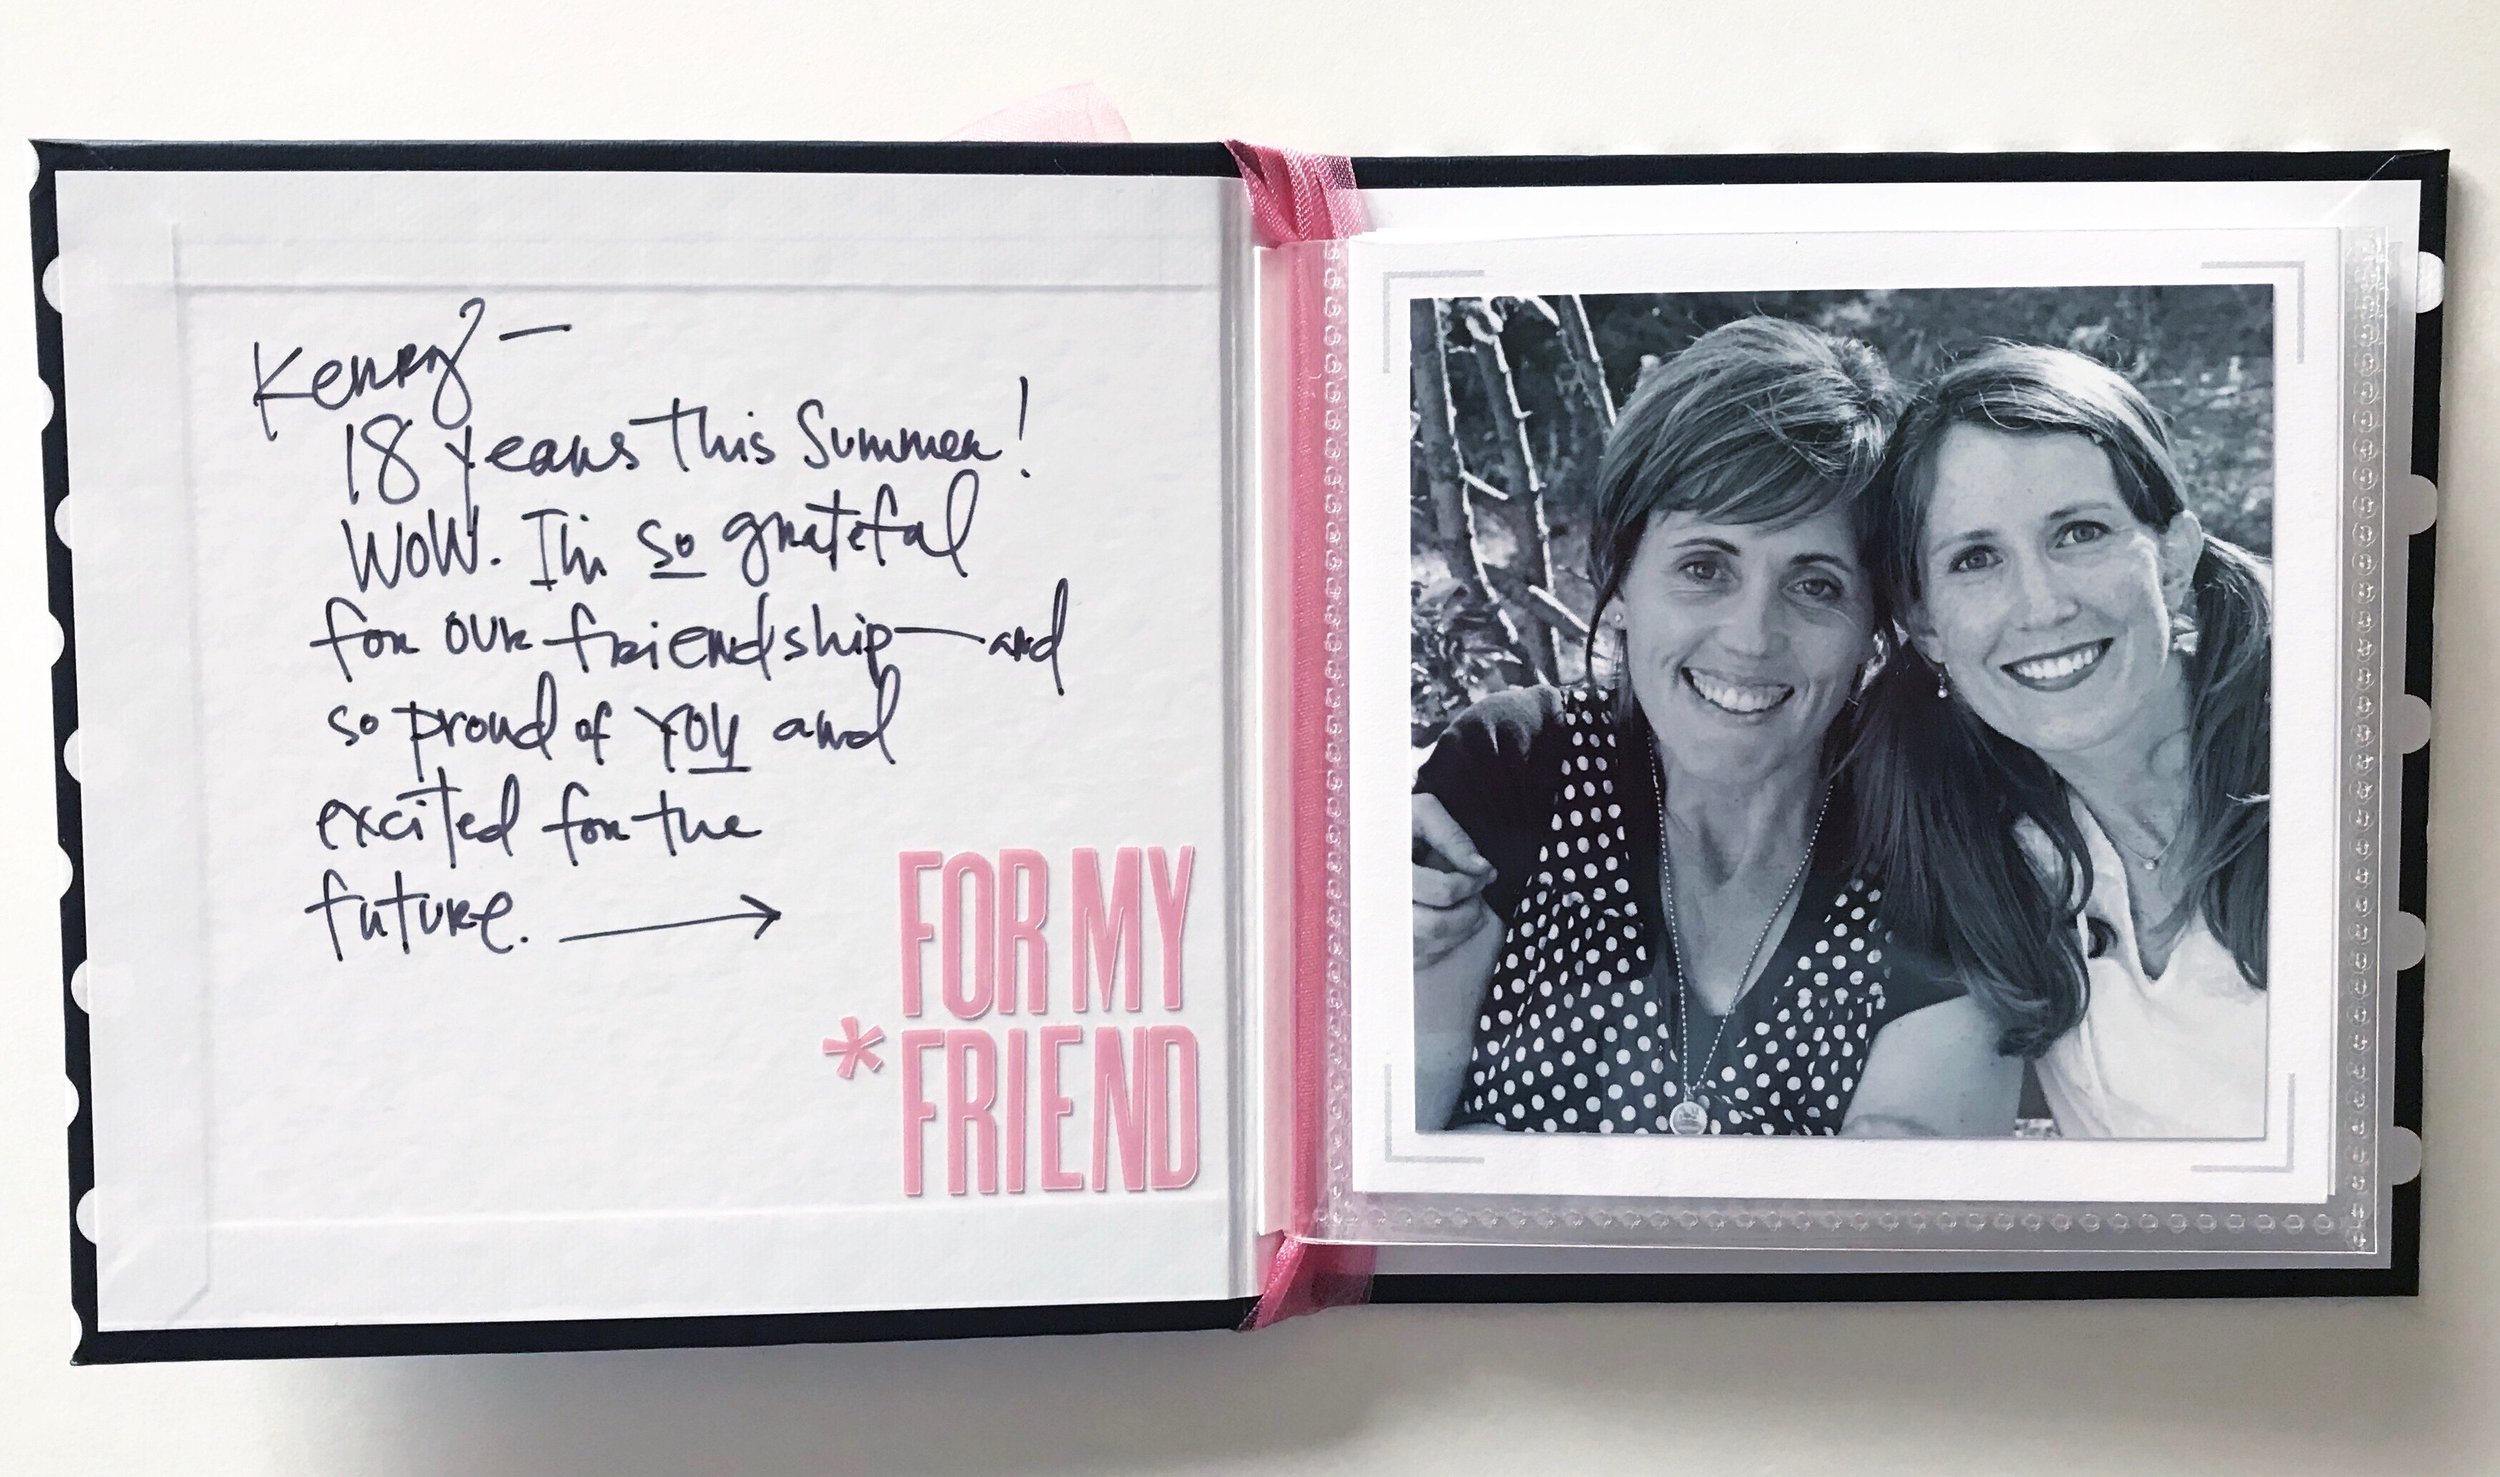 Kerry —
18 years this Summer!
WOW. I'm so grateful
for our friendship — and
so proud of YOU and
excited for the
future. →
FOR MY
* FRIEND